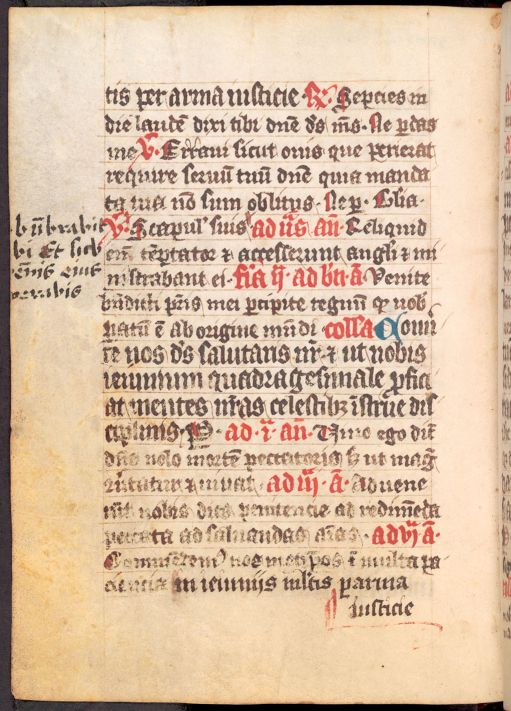 tis per arma iusticie · R. Sepcies in
die laudē dixi tibi dn̄e ds̄ ms̄ · Ne p̄das
me V. Erraui sicut ouis que perierat
require seruū tuū dn̄e quia manda
ta tua nō sum oblitus · Ne p̄ · Glia ·
V. Scapul' suis ad v̄s an̄ · Reliquid
eū tēptator & accesserunt angl'i & mi
nistrabant ei · fia ij · ad bn̄ a̅ Venite
bn̄dicti pr̄is mei p̄cipite regnū qd' uob'
patū ē ab origine mūdi · colla Cōuer
te nos ds̄ salutaris nr̄ & ut nobis
ieiunium quadragesimale p̄fici
at mentes nr̄as celestibz īstrue dis
ciplinis · P ad · i · an̄ · Viuo ego dic̄
dn̄s nolo mortē peccatoris s; ut mag'
cōu'tatur & uiuat · ad iij · a̅ · Aduene
rūt nobis dies penitencie ad redimēda
peccata ad saluandas aīas · ad vj a̅ ·
Cōmendem' nos metip̄os ī multa pa
ciencia in ieiunijs ml'tis p̄ arma
iusticie
b' ūbrabit
bi Et sub
ēnis eius
perabis